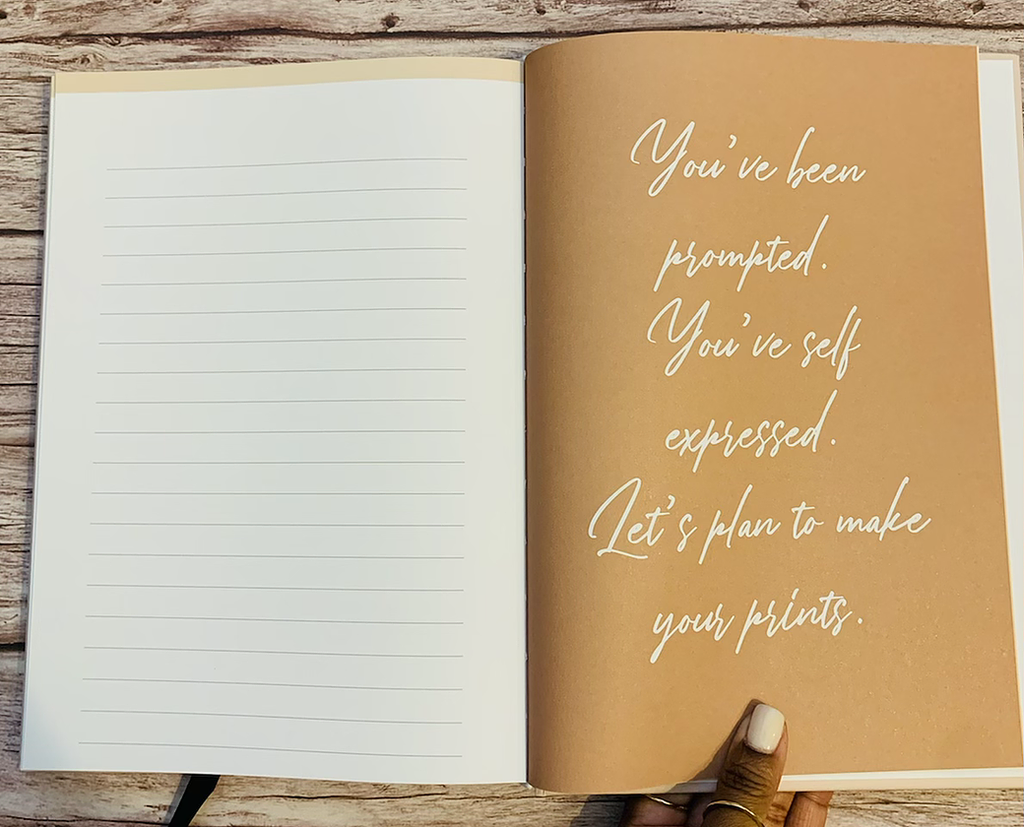 You've been
prompted.
You've self
expressed.
Let's plan to make
your prints.